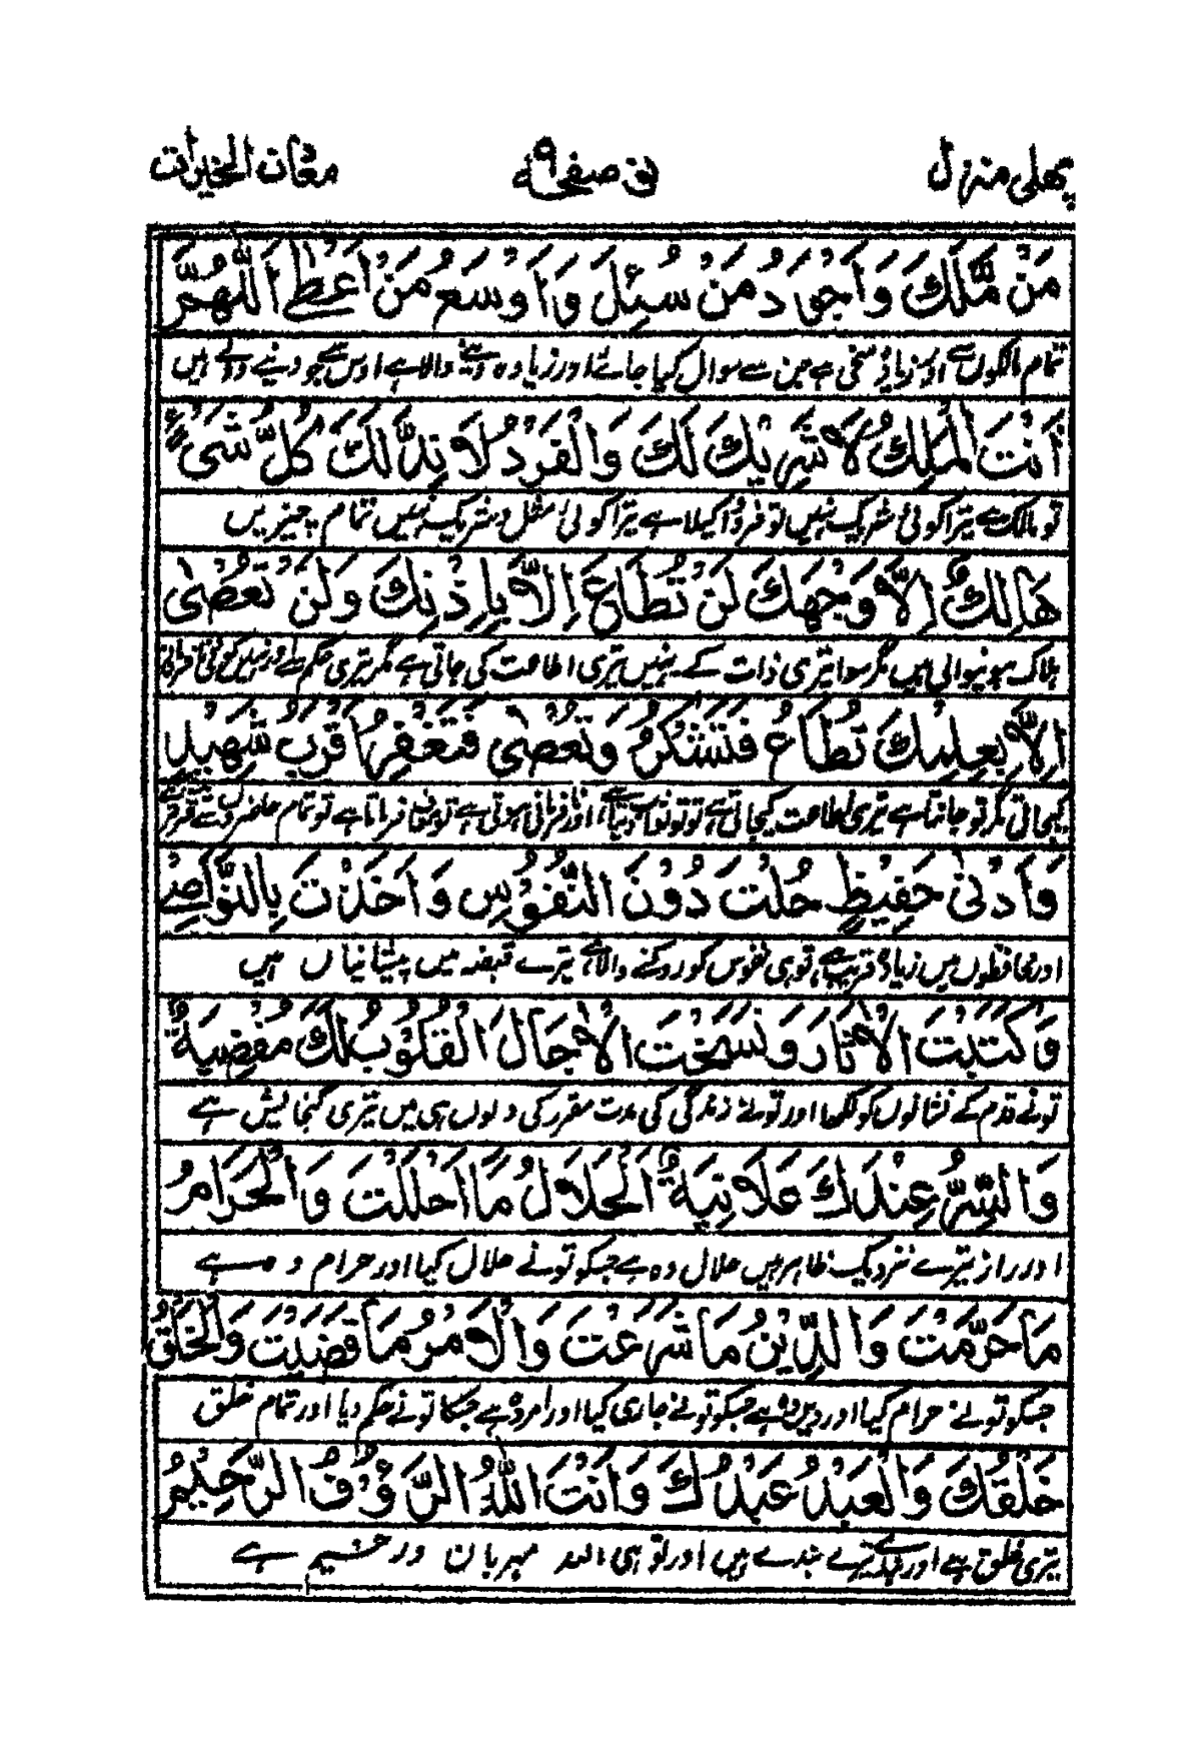 پهلی منزل صفحه ۹ مغان الخیرات
مَنْ مَّلَكَ وَاَجْوَدُ مَنْ سُئِلَ وَاَوْسَعُ مَنْ اَعْطٰی اَللّٰهُمَّ
تمام مالکوں سے اور زیادہ سخی ہے جن سے سوال کیا جائے اور زیادہ دینے والا ہے اوس سے جو دینے والے ہیں
اَنْتَ الْمَلِكُ لَا شَرِیْكَ لَكَ وَالْفَرْدُ لَا نِدَّ لَكَ كُلُّ شَیْءٍ
تو مالک ہے تیرا کوئی شریک نہیں تو فرد اکیلا ہے تیرا کوئی مثل و شریک نہیں تمام چیزیں
هَالِكٌ اِلَّا وَجْهَكَ لَنْ تُطَاعَ اِلَّا بِاِذْنِكَ وَلَنْ تُعْصٰی
ہلاک ہونیوالی ہیں مگر سوا تیری ذات کے نہیں تیری اطاعت کی جاتی ہے مگر تیری حکم سے اور
اِلَّا بِعِلْمِكَ تُطَاعُ فَتَشْكُرُ وَتُعْصٰی فَتَغْفِرُ اَقْرَبُ شَهِیْدٍ
کیجاتی مگر تو جانتا ہے تیری اطاعت کیجاتی ہے تو تو ثواب دیتا ہے اور نافرمانی ہوتی ہے تو معاف فرماتا ہے تو تمام
وَاَدْنٰی حَفِیْظٍ حُلْتَ دُوْنَ النُّفُوْسِ وَاَخَذْتَ بِالنَّوَاصِیْ
اور محافظوں میں زیادہ قریب ہے تو ہی نفوس کو روکنے والا ہے تیرے قبضہ میں پیشانیاں ہیں
وَكَتَبْتَ الْاٰثَارَ وَنَسَخْتَ الْاٰجَالَ الْقُلُوْبُ لَكَ مُفْضِیَةٌ
تو نے قدم کے نشانوں کو لکھا اور تو نے زندگی کی مدت مقرر کی دلوں ہی میں تیری گنجایش ہے
وَالسِّرُّ عِنْدَكَ عَلَانِیَةٌ الْحَلَالُ مَا اَحْلَلْتَ وَالْحَرَامُ
اور راز تیرے نزدیک ظاہر ہیں حلال وہ ہے جسکو تو نے حلال کیا اور حرام وہ ہے
مَا حَرَّمْتَ وَالدِّیْنُ مَا شَرَعْتَ وَالْاَمْرُ مَا قَضَیْتَ وَالْخَلْقُ
جسکو تو نے حرام کیا اور دین وہ ہے جسکو تو نے جاری کیا اور امر وہ ہے جسکا تو نے حکم دیا اور تمام خلق
خَلْقُكَ وَالْعَبْدُ عَبْدُكَ وَاَنْتَ اللّٰهُ الرَّؤُوْفُ الرَّحِیْمُ
تیری خلق ہے اور بندے تیرے بندے ہیں اور تو ہی اللہ مہربان و رحیم ہے